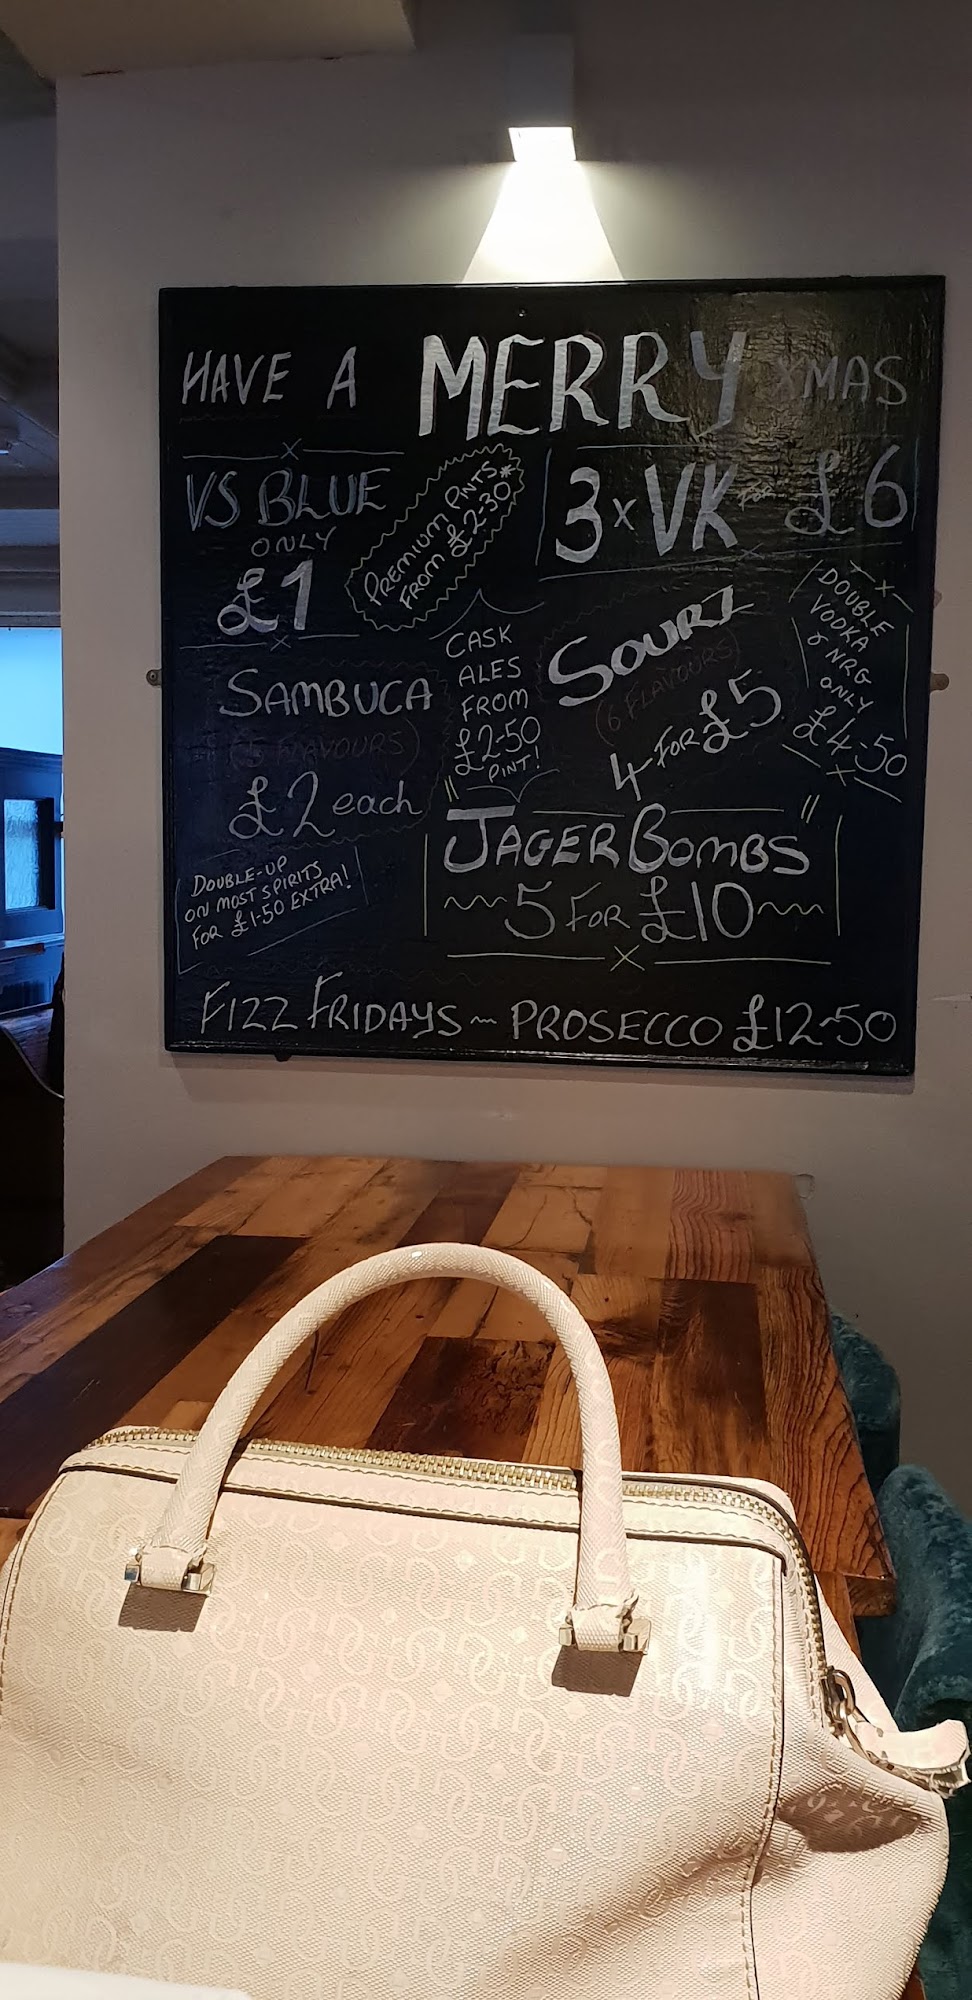 HAVE A MERRY XMAS
VS BLUE
ONLY
£1
PREMIUM PINTS*
FROM £2-30
3 x VK FOR £6
CASK
ALES
FROM
£2-50
PINT!
SOURZ
(6 FLAVOURS)
4 FOR £5
DOUBLE
VODKA
& NRG
ONLY
£4-50
SAMBUCA
(5 FLAVOURS)
£2 each
"JAGERBOMBS"
5 FOR £10
DOUBLE-UP
ON MOST SPIRITS
FOR £1-50 EXTRA!
FIZZ FRIDAYS ~ PROSECCO £12-50